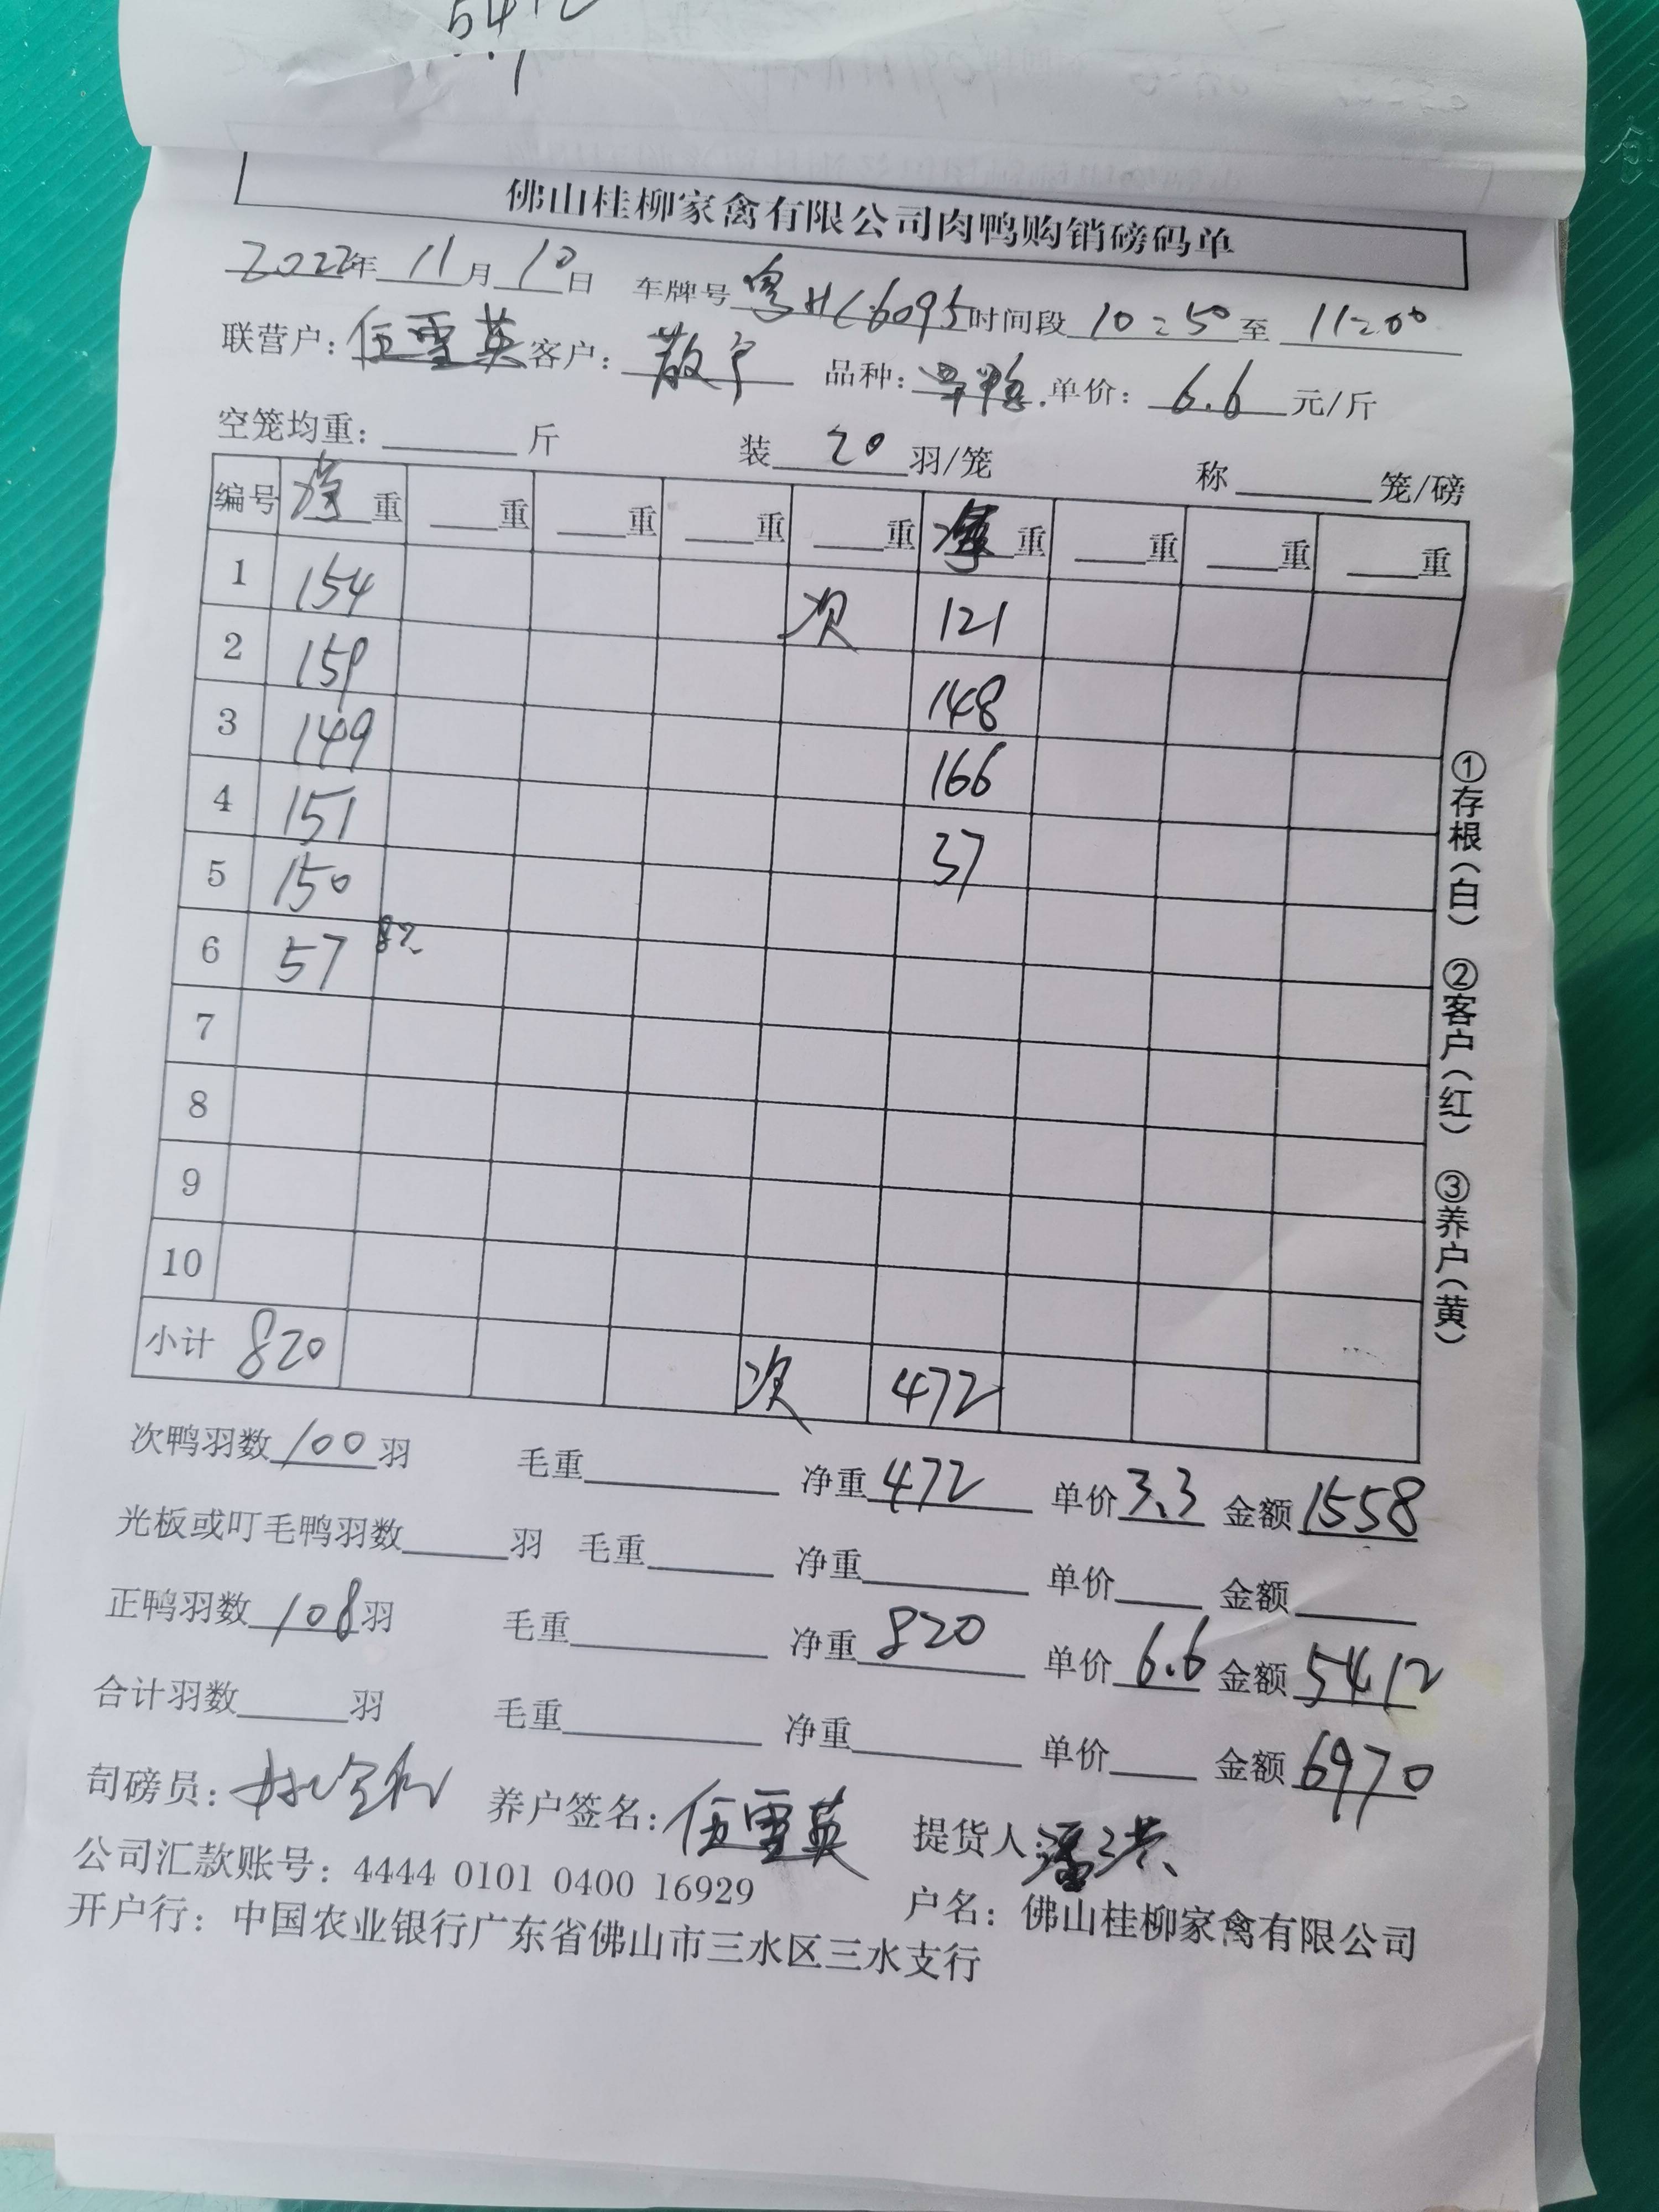 佛山桂柳家禽有限公司肉鸭购销磅码单
2022年 11月 10日 车牌号 粤HC6095 时间段 10:50 至 11:00
联营户: 伍雪英 客户: 散户 品种: 单价: 6.6 元/斤
空笼均重: 斤 装 20 羽/笼 称 笼/磅
编号 净重 重 重 重 重 净重 重 重 重
1 154 次 121
2 159 148
3 149 166
4 151 37
5 150
6 57
7
8
9
10
小计 820 次 472
次鸭羽数 100 羽 毛重 净重 472 单价 3.3 金额 1558
光板或叮毛鸭羽数 羽 毛重 净重 单价 金额
正鸭羽数 108 羽 毛重 净重 820 单价 6.6 金额 5412
合计羽数 羽 毛重 净重 单价 金额 6970
司磅员: 养户签名: 伍雪英 提货人:
公司汇款账号: 4444 0101 0400 16929 户名: 佛山桂柳家禽有限公司
开户行: 中国农业银行广东省佛山市三水区三水支行
①存根(白) ②客户(红) ③养户(黄)